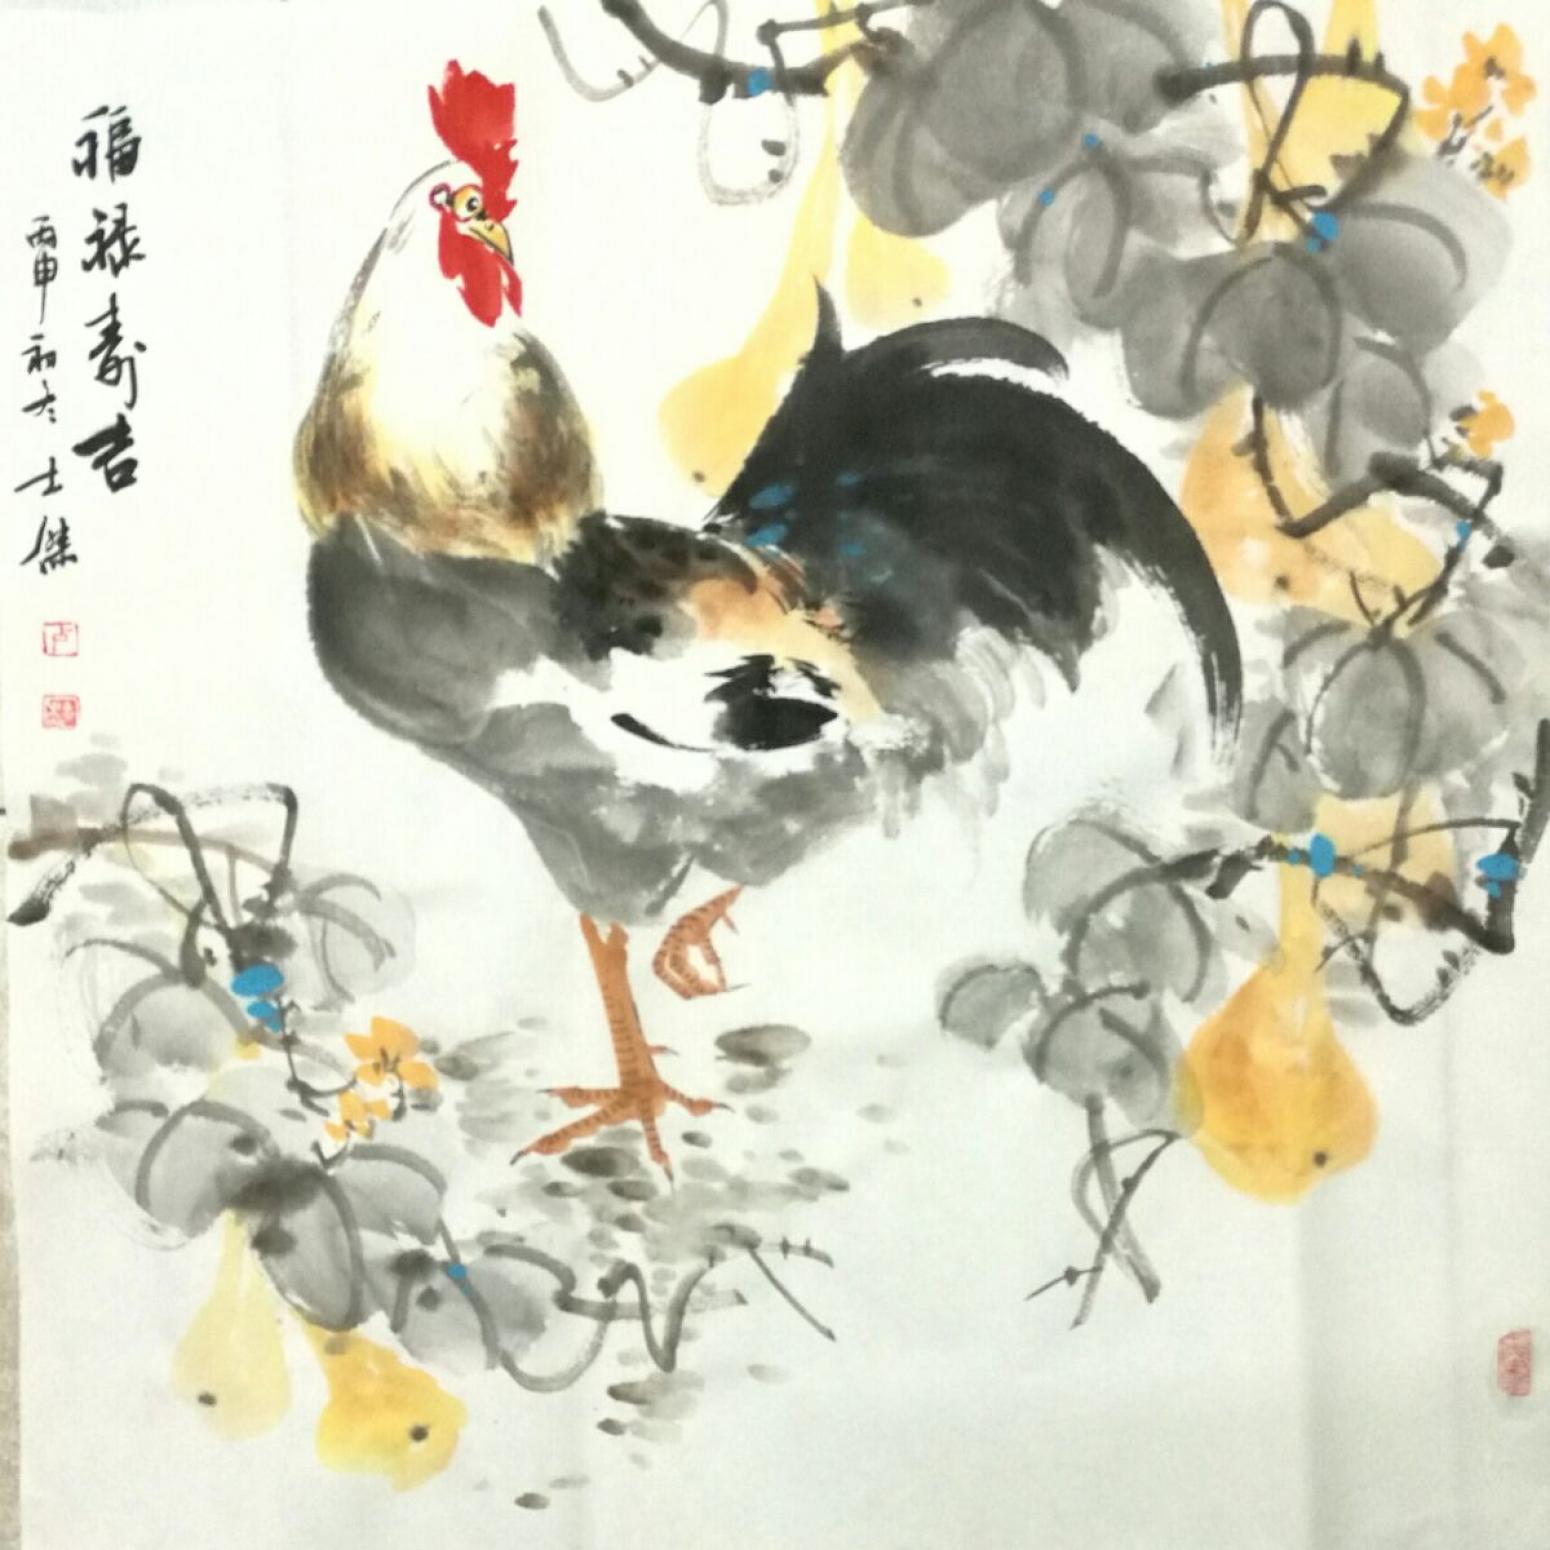 福禄寿吉
丙申初冬士傑